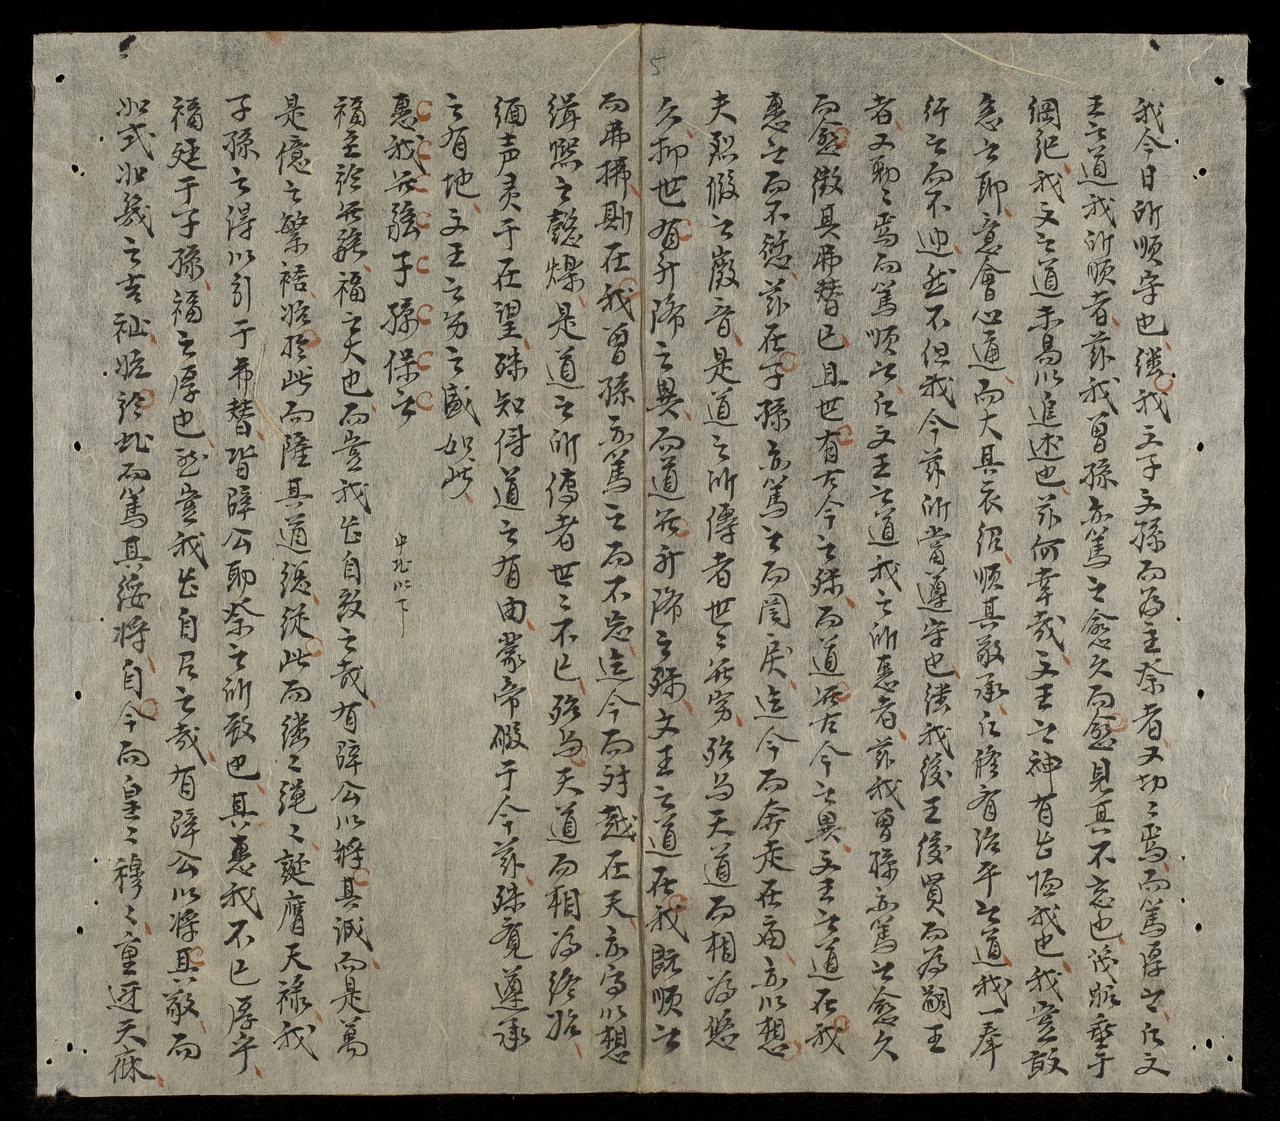 我今日所順守也継我王子文孫而為主祭者又切々焉而篤厚之江文
王之道我所順者茲我曽孫亦篤之愈久而愈見其不忘也茂賑垂于
綱紀我文之道示易以追述也茲何幸哉文王之神有忠恤我也我豈敢
怠之耶意會心通而大其衣紹順其敬承之膺有治平之道我一奉
行之而不迪然不但我今茲所當遵守也継我後王後賢而為嗣王
者又勤々焉而篤順之江文王之道我之所恵者茲我曽孫亦篤之愈久
而愈徴其弗替已且世有古今之殊而道無古今之異文王之道在我
恵之而不愆茲在子孫亦篤之而罔戻迄今而奔走在廟亦以想
夫烈假之徽音是道之所傳者世々無窮殆与天道而相為悠
久抑世有升降之異而道無升降之殊文王之道在我既順之
而弗拂則在我曽孫亦篤之而不忘迄今而對越在天亦寓以想
緝熙之懿爍是道之所傳者世々不已殆与天道而相為終始
緬声灵于在望殊知侍道之有由蒙帝假于今茲殊覚遵承
之有地文王之労之盛如此
恵我無疆子孫保之
中九比下
福至於無疆福之大也而豈我㠯自致之哉有辟公以將其誠而是萬
是億之繁禧始於此而隆其道總從此而継々繩々誕膺天祿我
子孫之得以引于弗替皆辟公助祭之所致也其恵我不已厚乎
福延于子孫福之厚也然豈我㠯自召之哉有辟公以將其敬而
如式如幾之吉祉始於此而篤其綏將自今而皇々穆々重迓天庥